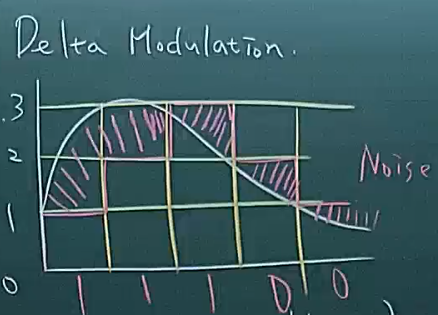 Delta Modulation.
.3
2
Noise
1
0
1 1 1 0 0